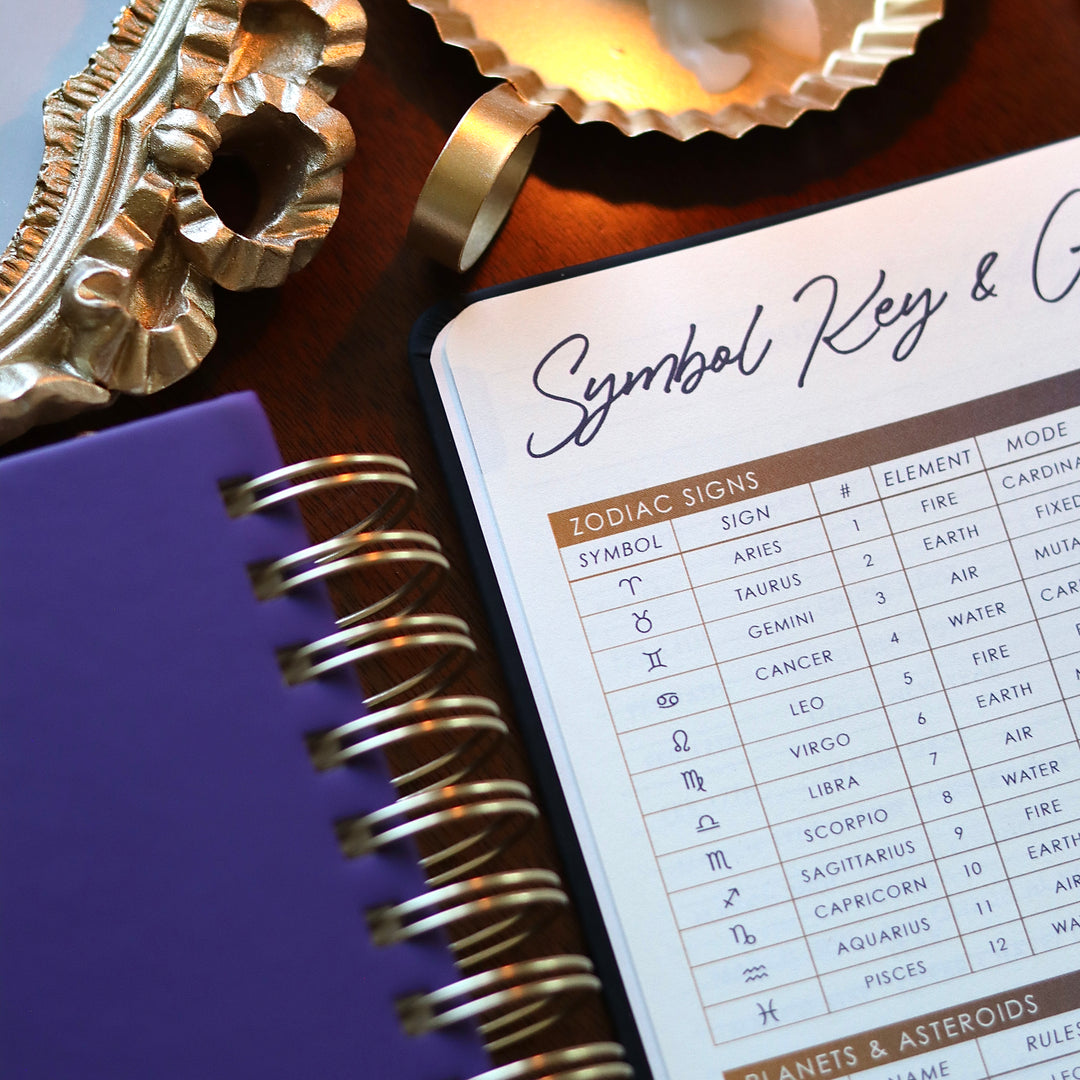 Symbol Key & G
ZODIAC SIGNS
SYMBOL SIGN # ELEMENT MODE
♈ ARIES 1 FIRE CARDINA
♉ TAURUS 2 EARTH FIXED
♊ GEMINI 3 AIR MUTA
♋ CANCER 4 WATER CAR
♌ LEO 5 FIRE
♍ VIRGO 6 EARTH
♎ LIBRA 7 AIR
♏ SCORPIO 8 WATER
♐ SAGITTARIUS 9 FIRE
♑ CAPRICORN 10 EARTH
♒ AQUARIUS 11 AIR
♓ PISCES 12 WA
PLANETS & ASTEROIDS
NAME RULES